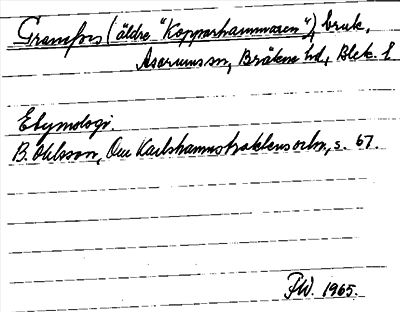 Granefors (äldre "Kopparhammaren"), bruk,
Asarums sn, Bräkne hd, Blek. l
Etymologi.
B. Ohlsson, Om Karlshamnstraktens ortn, s. 67.
FW. 1965.